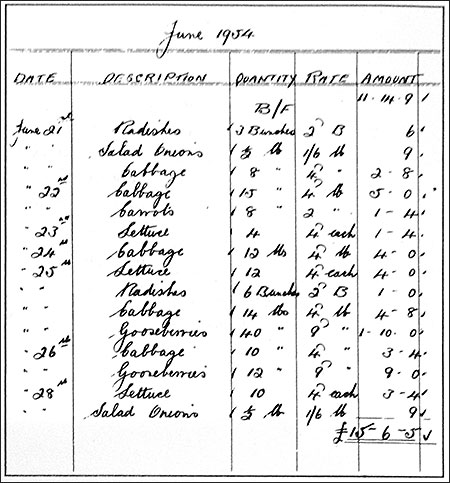 June 1954
DATE DESCRIPTION QUANTITY RATE AMOUNT
B/F 11-14-9
June 21st Radishes 3 Bunches 2d B 6
" " Salad Onions ½ lb 1/6 lb 9
" " Cabbage 8 " 4d " 2-8
" 22nd Cabbage 15 " 4d lb 5-0
" " Carrots 8 " 2 " 1-4
" 23rd Lettuce 4 4d each 1-4
" 24th Cabbage 12 lbs 4d lb 4-0
" 25th Lettuce 12 4d each 4-0
" " Radishes 6 Bunches 2d B 1-0
" " Cabbage 14 lbs 4d lb 4-8
" " Gooseberries 40 " 9d " 1-10-0
" 26th Cabbage 10 " 4d " 3-4
" " Gooseberries 12 " 9d " 9-0
" 28th Lettuce 10 4d each 3-4
" " Salad Onions ½ lb 1/6 lb 9
£15-6-5